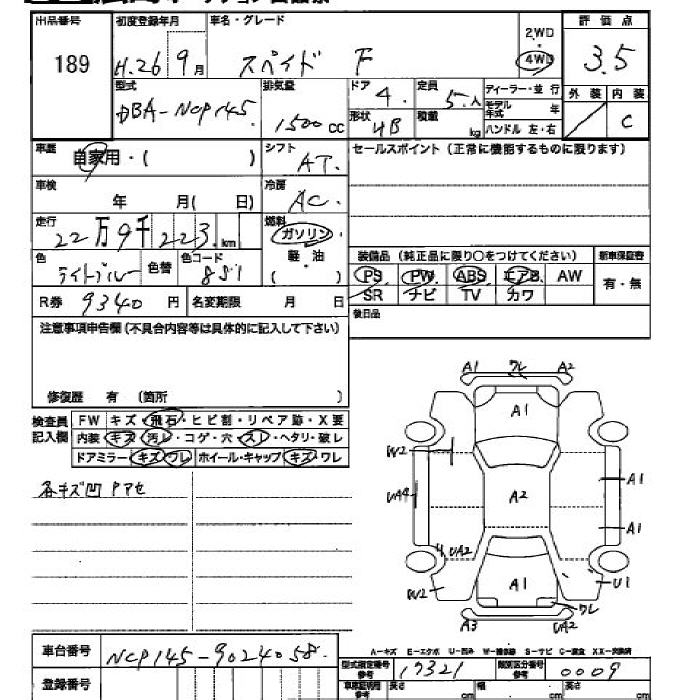 出品番号 初度登録年月 車名・グレード 2WD 評価点
189 H.26 9月 スペイド F 4WD 3.5
型式 排気量 ドア 定員 ディーラー・並行 外装 内装
DBA-NCP145. 1500cc 4. 5.人 モデル年式 年 C
形状 4B 積載 kg ハンドル 左・右
車歴 自家用・( ) シフト AT. セールスポイント(正常に機能するものに限ります)
車検 年 月( 日) 冷房 AC.
走行 22万9千223.km 燃料 ガソリン
軽・油
( )
色 ライトブルー 色替 色コード 8S1
装備品(純正品に限り○をつけてください) 新車保証書
PS PW ABS エアB AW 有・無
SR ナビ TV カワ
R券 9340円 名変期限 月 日 後日品
注意事項申告欄(不具合内容等は具体的に記入して下さい)
修復歴 有 (箇所 )
検査員記入欄 FW キズ・飛石・ヒビ割・リペア跡・X要
内装 キズ・汚レ・コゲ・穴・スレ・ヘタリ・破レ
ドアミラー キズ・ワレ ホイール・キャップ キズ・ワレ
各キズ凹 Pアセ
A1 ワレ A2
A1
W2
UA4 A2 A1
A1
UA2
W2 A1 U1
ワレ
A3 UA2
A-キズ E-エクボ U-凹み W-補修跡 S-サビ C-腐食 XX-交換済
車台番号 NCP145-9024058. 型式指定番号 参考 17321 類別区分番号 参考 0009
登録番号 車庫証明用 参考 長さ cm 幅 cm 高さ cm